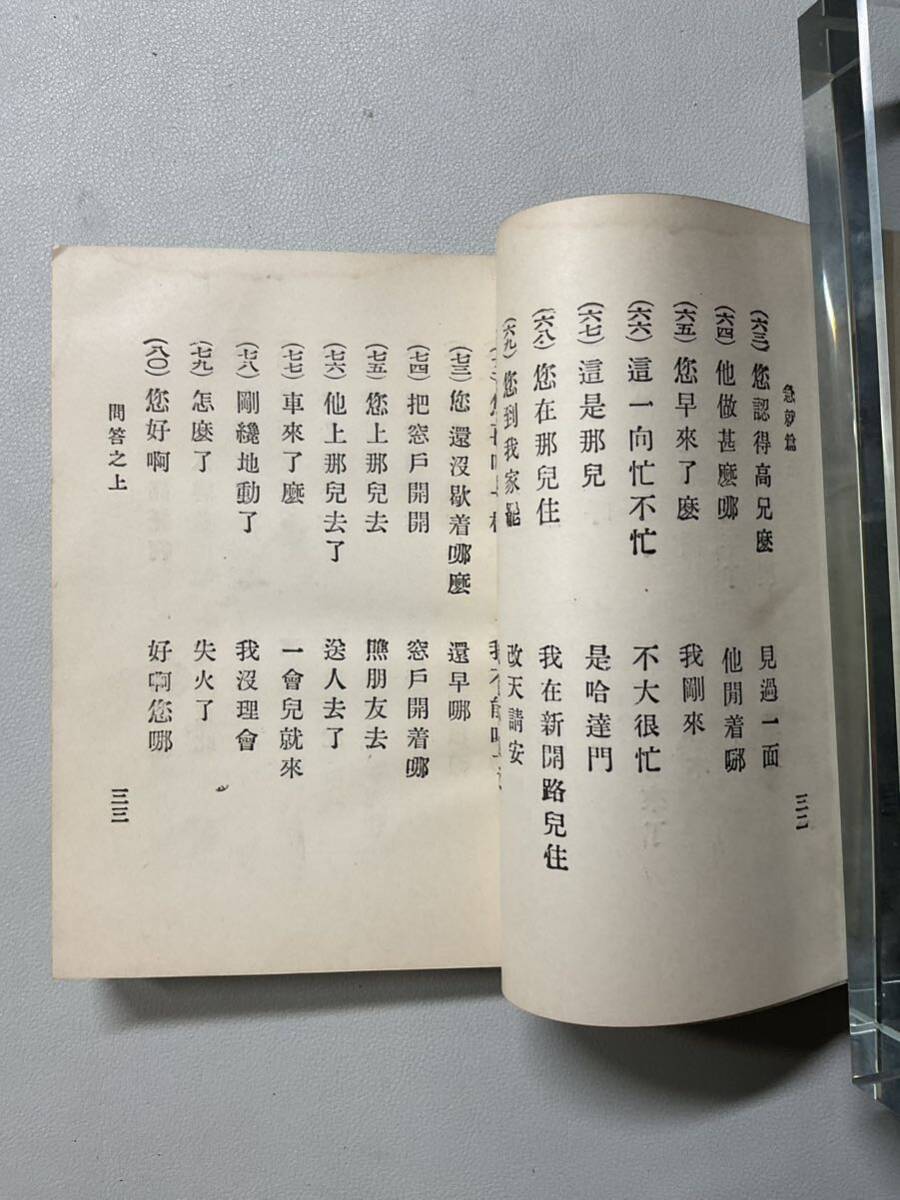 急就篇
(六三)您認得高兄麼 見過一面
(六四)他做甚麼哪 他閒着哪
(六五)您早來了麼 我剛來
(六六)這一向忙不忙 不大很忙
(六七)這是那兒 是哈達門
(六八)您在那兒住 我在新開路兒住
(六九)您到我家罷 改天請安
三二
(七三)您還沒歇着哪麼 還早哪
(七四)把窓戶開開 窓戶開着哪
(七五)您上那兒去 熊朋友去
(七六)他上那兒去了 送人去了
(七七)車來了麼 一會兒就來
(七八)剛纔地動了 我沒理會
(七九)怎麼了 失火了
(八〇)您好啊 好啊您哪
問答之上
三三